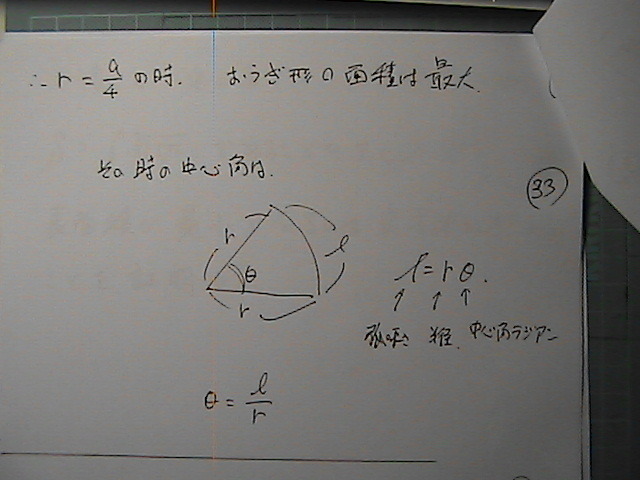 ∴ r = a/4 の時. おうぎ形の面積は最大.
その時の中心角は.
33
r
l
θ
r
l = rθ.
↑ ↑ ↑
弧の長さ 半径. 中心角ラジアン
θ = l/r